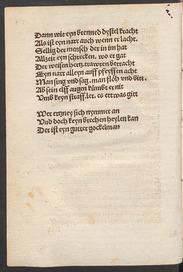 Dann wie eyn brenned dystel kracht
Also ist eyn narr auch wenn er lacht.
Sellig der mensch der in im hat
Allzeit eyn schrecken, wo er gat
Der weisen hertz, trawren betracht
Eyn narr alleyn auff pfeyffen acht
Man sing vnd sag, man flöh vnd bitt,
Ab sein eilff augen kumbt er nit
Vmb keyn straff, ler, es ettwas gitt

Wer ertzney sich nymmet an
Vnd doch keyn brechen heylen kan
Der ist eyn gutter gockelman